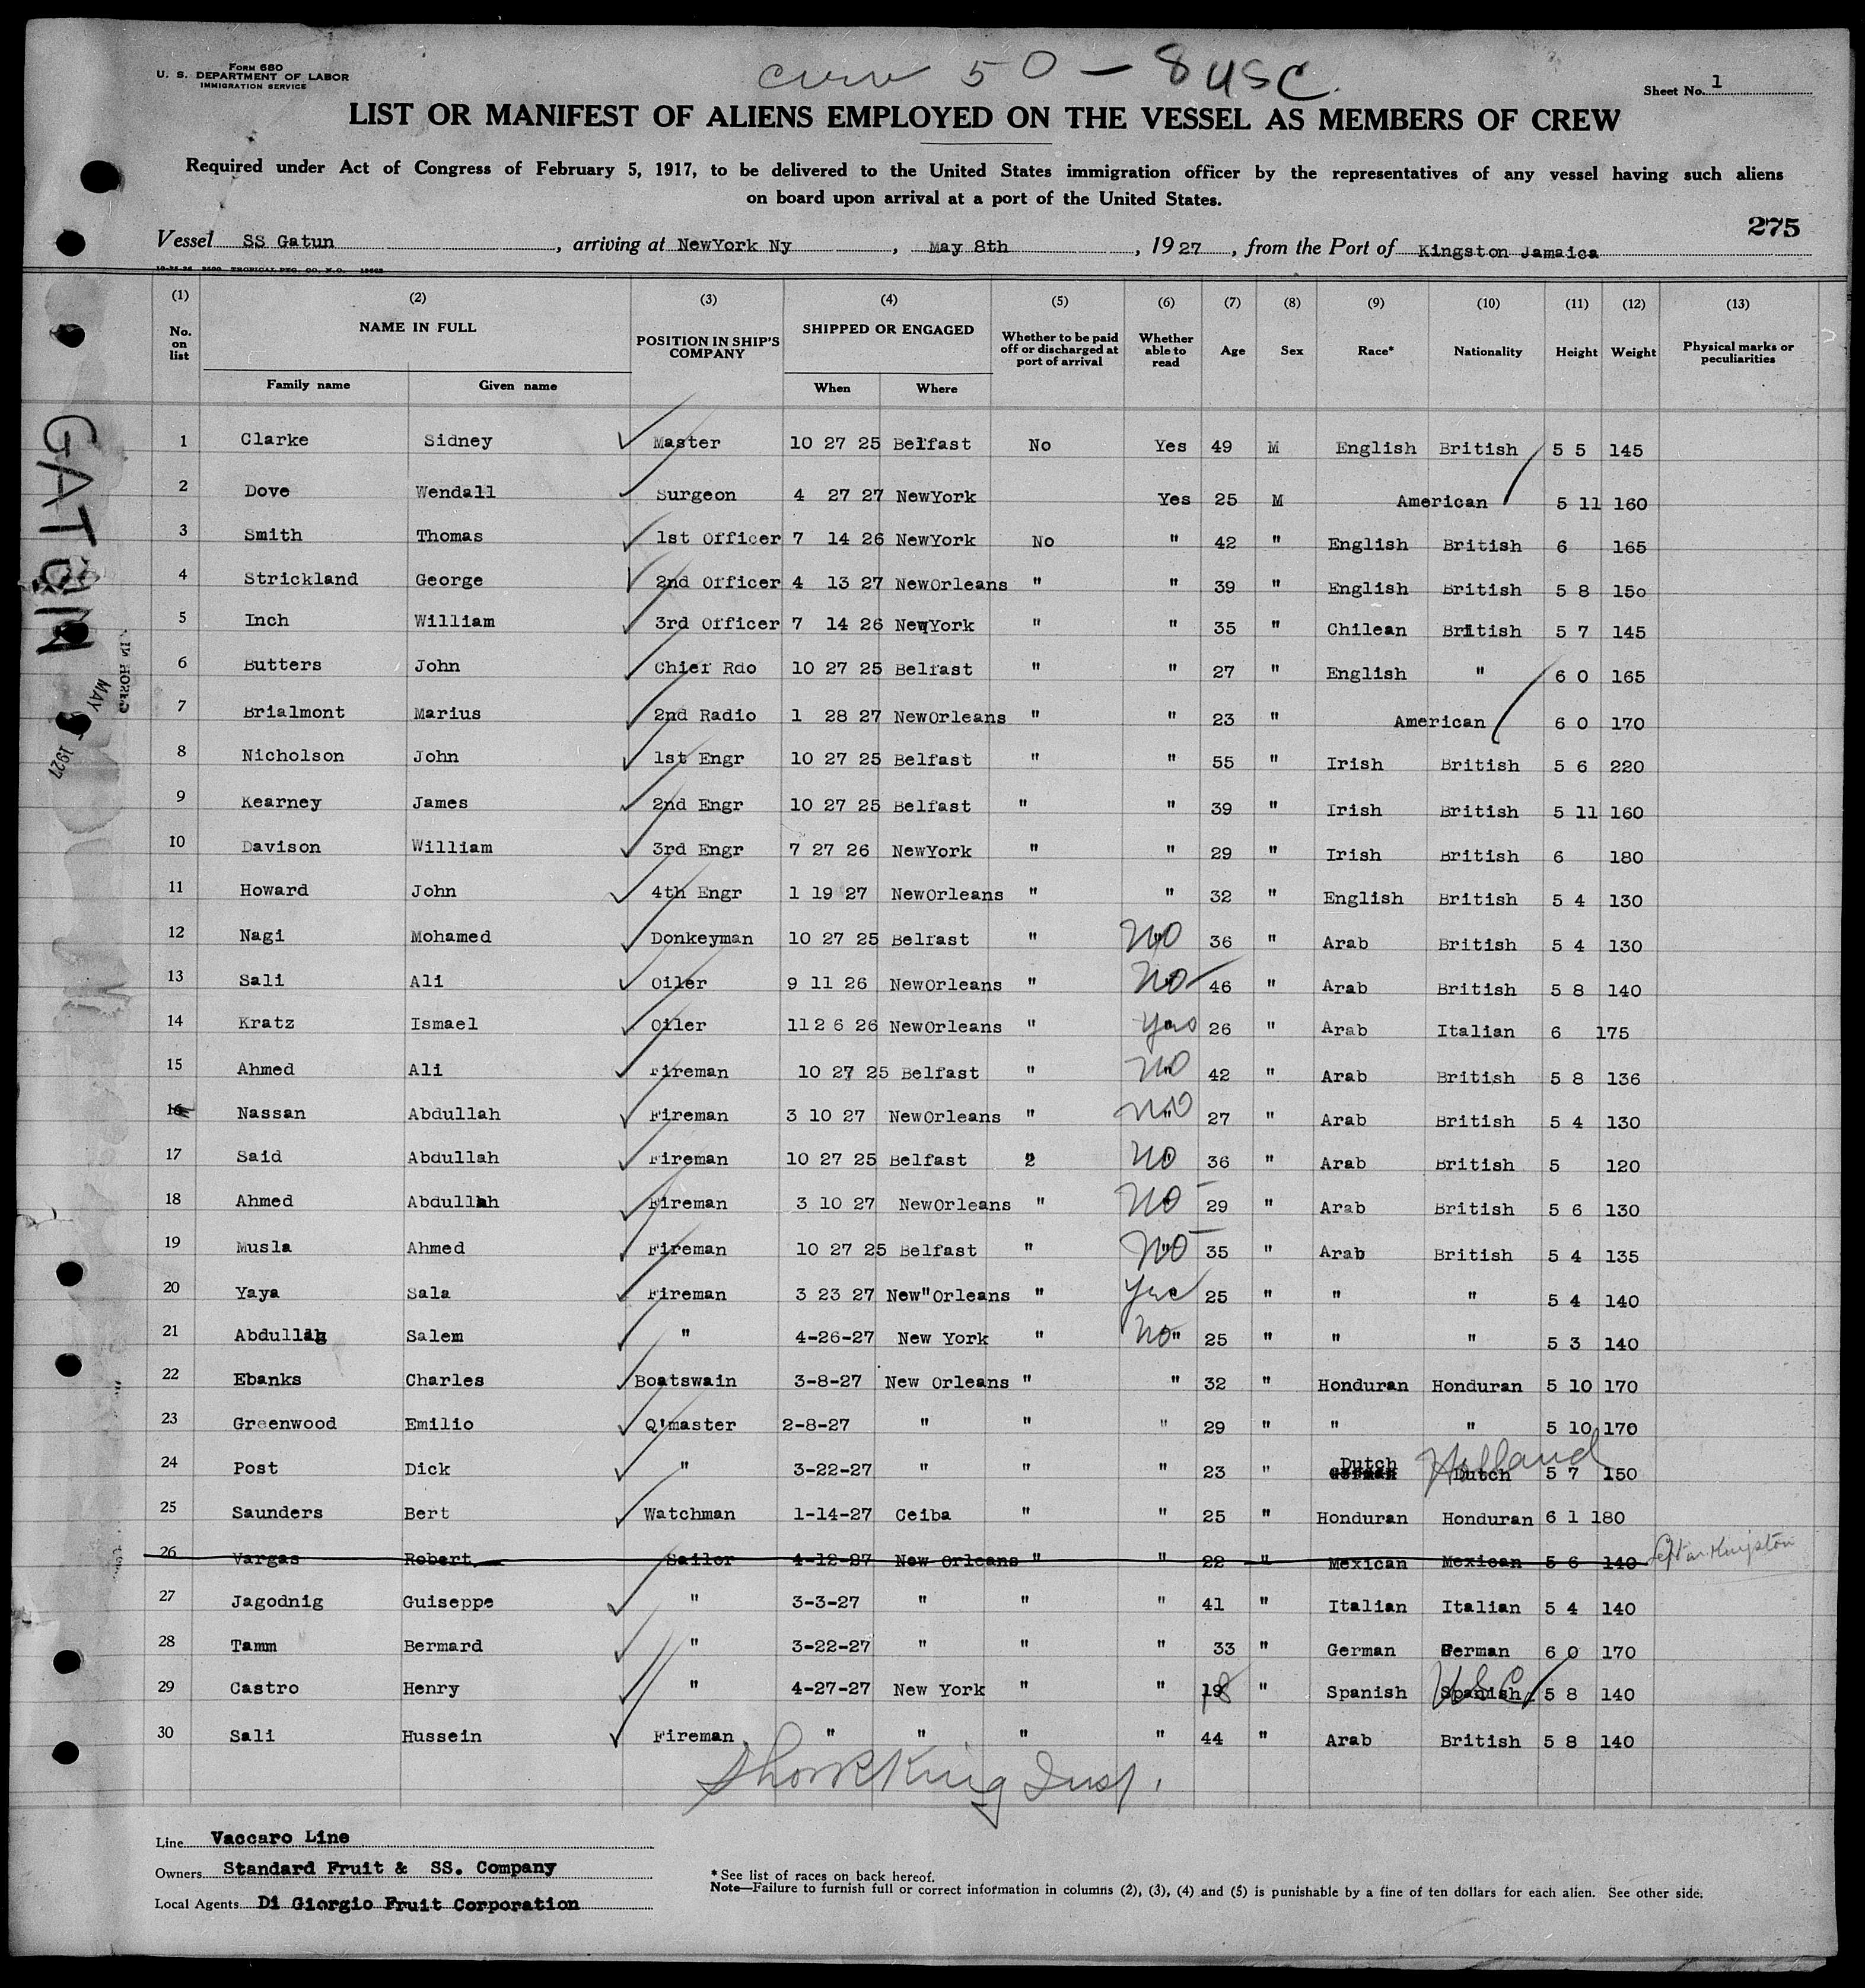 Form 680
U. S. DEPARTMENT OF LABOR
IMMIGRATION SERVICE
crew 50 – 8 USC.
Sheet No. 1
LIST OR MANIFEST OF ALIENS EMPLOYED ON THE VESSEL AS MEMBERS OF CREW
Required under Act of Congress of February 5, 1917, to be delivered to the United States immigration officer by the representatives of any vessel having such aliens
on board upon arrival at a port of the United States.
275
Vessel SS Gatun, arriving at NewYork Ny, May 8th, 1927, from the Port of Kingston Jamaica
(1) (2) (3) (4) (5) (6) (7) (8) (9) (10) (11) (12) (13)
No. on list NAME IN FULL POSITION IN SHIP'S COMPANY SHIPPED OR ENGAGED Whether to be paid off or discharged at port of arrival Whether able to read Age Sex Race* Nationality Height Weight Physical marks or peculiarities
Family name Given name When Where
1 Clarke Sidney Master 10 27 25 Belfast No Yes 49 M English British 5 5 145
2 Dove Wendall Surgeon 4 27 27 NewYork Yes 25 M American 5 11 160
3 Smith Thomas 1st Officer 7 14 26 NewYork No " 42 " English British 6 165
4 Strickland George 2nd Officer 4 13 27 NewOrleans " " 39 " English British 5 8 150
5 Inch William 3rd Officer 7 14 26 NewYork " " 35 " Chilean British 5 7 145
6 Butters John Chief Rdo 10 27 25 Belfast " " 27 " English " 6 0 165
7 Brialmont Marius 2nd Radio 1 28 27 NewOrleans " " 23 " American 6 0 170
8 Nicholson John 1st Engr 10 27 25 Belfast " " 55 " Irish British 5 6 220
9 Kearney James 2nd Engr 10 27 25 Belfast " " 39 " Irish British 5 11 160
10 Davison William 3rd Engr 7 27 26 NewYork " " 29 " Irish British 6 180
11 Howard John 4th Engr 1 19 27 NewOrleans " " 32 " English British 5 4 130
12 Nagi Mohamed Donkeyman 10 27 25 Belfast " No 36 " Arab British 5 4 130
13 Sali Ali Oiler 9 11 26 NewOrleans " No 46 " Arab British 5 8 140
14 Kratz Ismael Oiler 11 2 6 26 NewOrleans " Yes 26 " Arab Italian 6 175
15 Ahmed Ali Fireman 10 27 25 Belfast " No 42 " Arab British 5 8 136
16 Nassan Abdullah Fireman 3 10 27 NewOrleans " No 27 " Arab British 5 4 130
17 Said Abdullah Fireman 10 27 25 Belfast 2 No 36 " Arab British 5 120
18 Ahmed Abdullah Fireman 3 10 27 NewOrleans " No 29 " Arab British 5 6 130
19 Musla Ahmed Fireman 10 27 25 Belfast " No 35 " Arab British 5 4 135
20 Yaya Sala Fireman 3 23 27 New"Orleans " Yes 25 " " " 5 4 140
21 Abdullah Salem " 4-26-27 New York " No " 25 " " " 5 3 140
22 Ebanks Charles Boatswain 3-8-27 New Orleans " " 32 " Honduran Honduran 5 10 170
23 Greenwood Emilio Q'master 2-8-27 " " " 29 " " " 5 10 170
24 Post Dick " 3-22-27 " " " 23 " Dutch Dutch Holland 5 7 150
25 Saunders Bert Watchman 1-14-27 Ceiba " " 25 " Honduran Honduran 6 1 180
26 Vargas Robert Sailor 4-12-27 New Orleans " " 22 " Mexican Mexican 5 6 140 Left in Kingston
27 Jagodnig Guiseppe " 3-3-27 " " " 41 " Italian Italian 5 4 140
28 Tamm Bermard " 3-22-27 " " " 33 " German German 6 0 170
29 Castro Henry " 4-27-27 New York " " 18 " Spanish Spanish USC 5 8 140
30 Sali Hussein Fireman " " " " 44 " Arab British 5 8 140
Line Vaccaro Line
Owners Standard Fruit & SS. Company
Local Agents Di Giorgio Fruit Corporation
* See list of races on back hereof.
Note—Failure to furnish full or correct information in columns (2), (3), (4) and (5) is punishable by a fine of ten dollars for each alien. See other side.
GATUN
MAY
1927